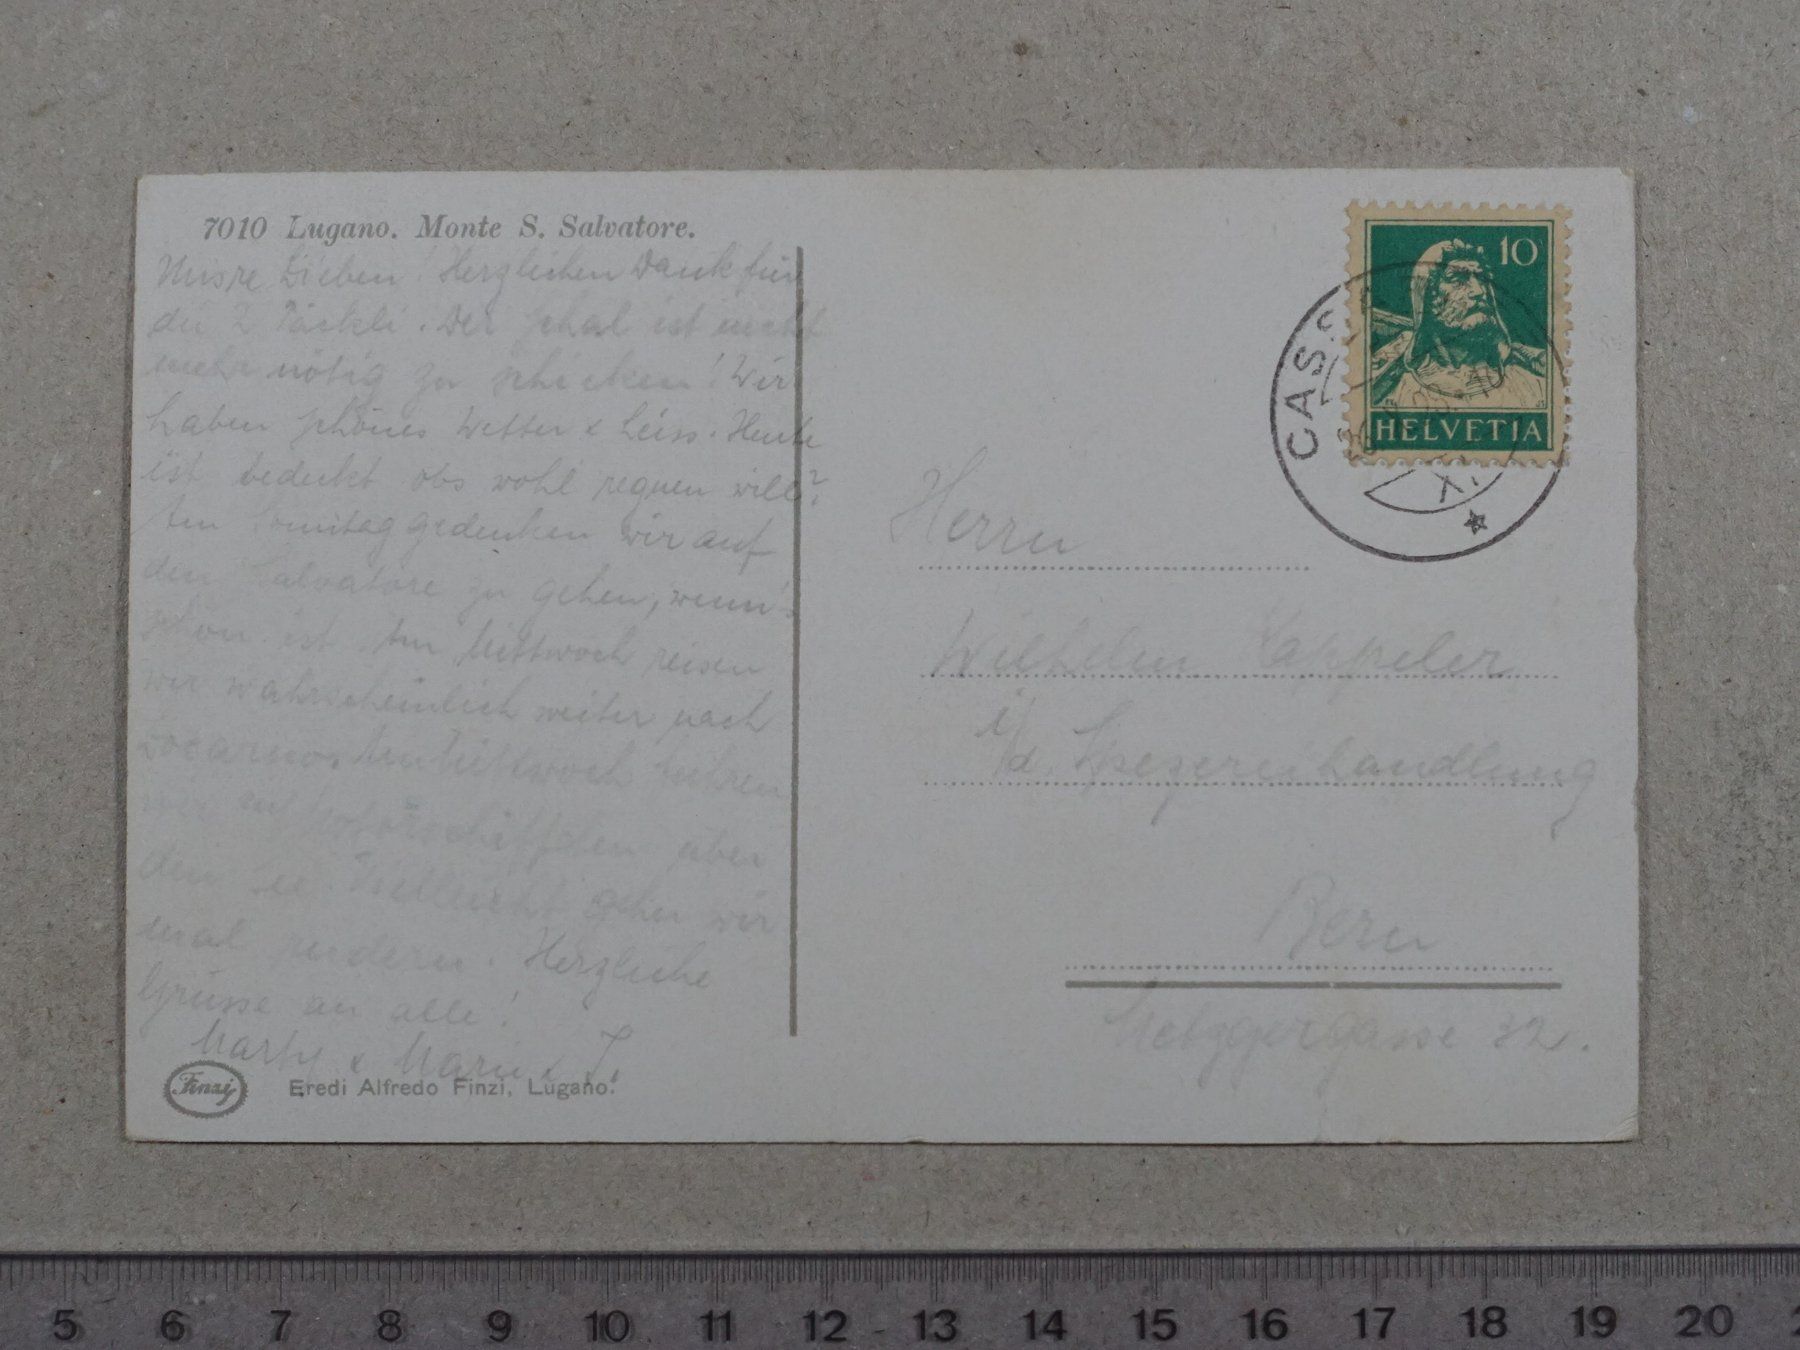 7010 Lugano. Monte S. Salvatore.
Unsre Lieben! Herzlichen Dank für
die 2 Päckli. Der Schal ist nicht
mehr nötig zu schicken! Wir
haben schönes Wetter & heiss. Heute
ist bedeckt obs wohl regnen will?
Am Sonntag gedenken wir auf
den Salvatore zu gehen, wenn's
schön ist. Am Mittwoch reisen
wir wahrscheinlich weiter nach
Locarno. Am Mittwoch fuhren
wir im Motorschiffchen über
den See. Vielleicht gehen wir
mal rudern. Herzliche
Grüsse an alle!
Marty &
Finzi
Eredi Alfredo Finzi, Lugano.
10
HELVETIA
CAS
Herrn
Wilhelm Kappeler
i/d. Spezereihandlung
Bern
Metzgergasse 32.
5 6 7 8 9 10 11 12 13 14 15 16 17 18 19 20